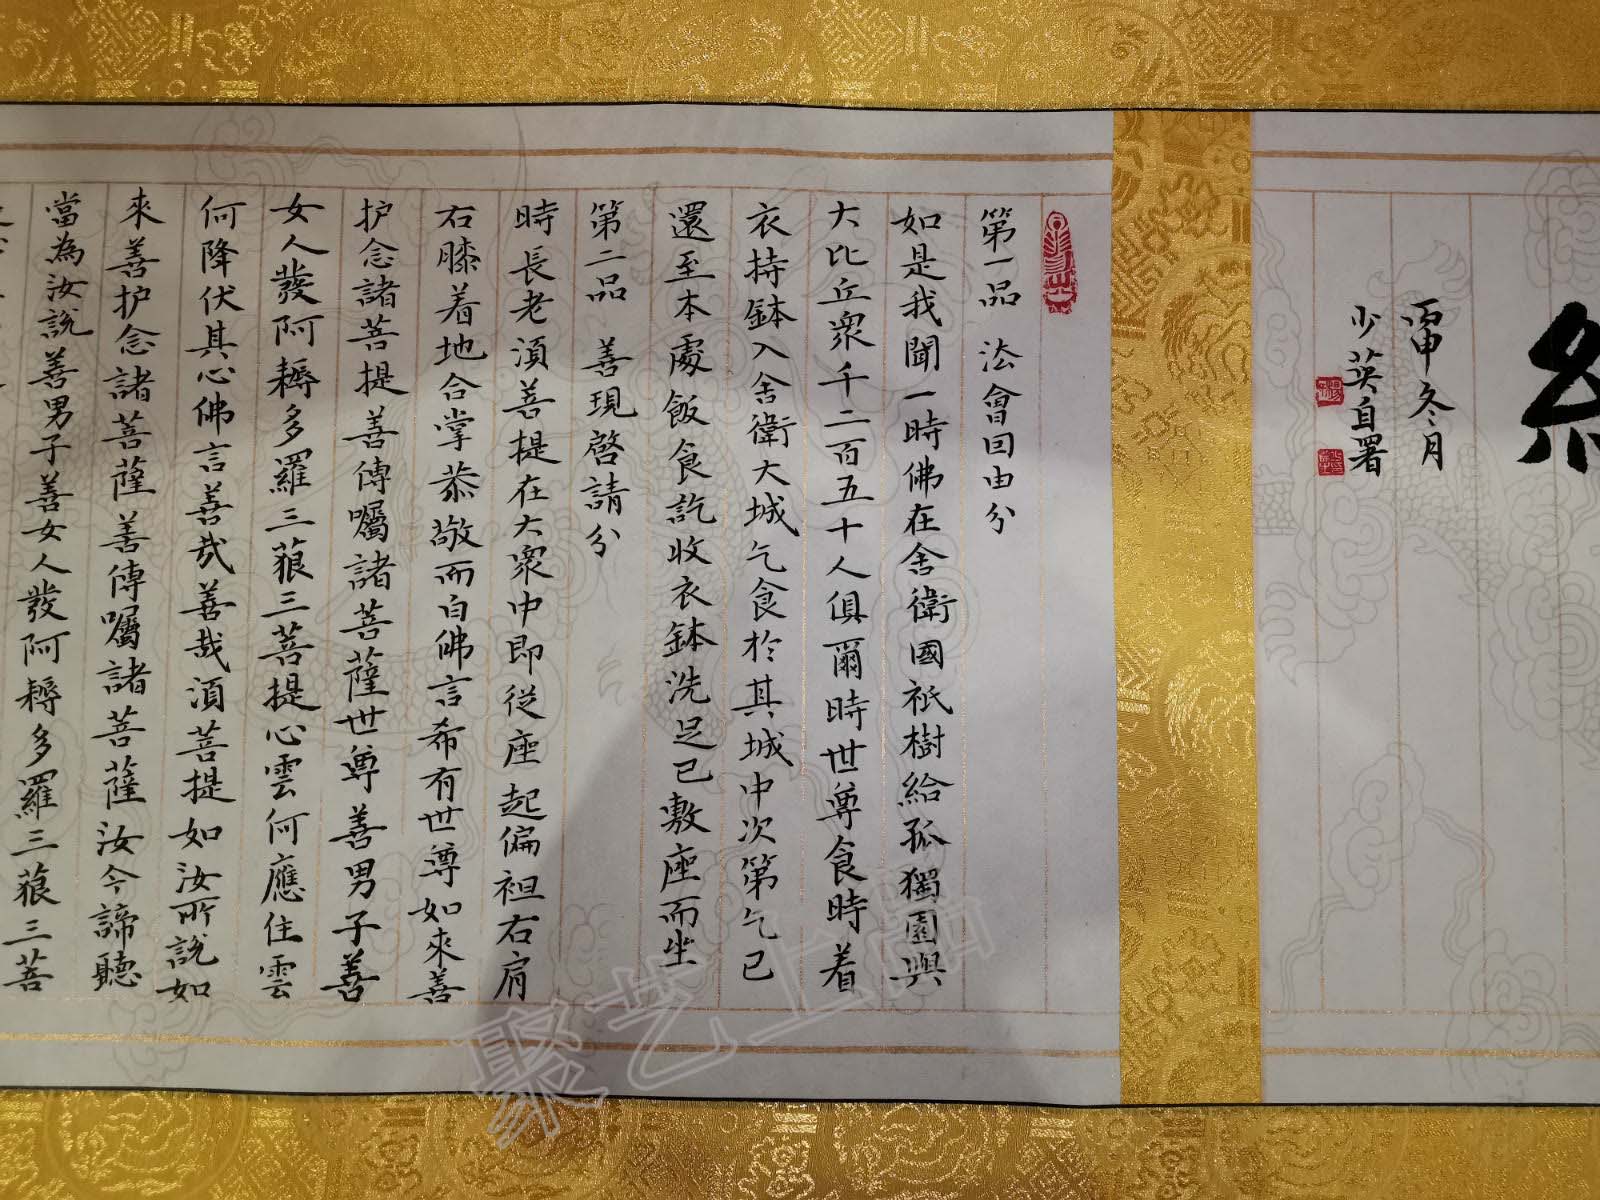 丙申冬月
少英自署
第一品 法會因由分
如是我聞一時佛在舍衛國祇樹給孤獨園與
大比丘衆千二百五十人俱爾時世尊食時着
衣持鉢入舍衛大城乞食於其城中次第乞已
還至本處飯食訖收衣鉢洗足已敷座而坐
第二品 善現啓請分
時長老湏菩提在大衆中即從座起偏袒右肩
右膝着地合掌恭敬而白佛言希有世尊如來善
护念諸菩提善傅囑諸菩薩世尊善男子善
女人發阿耨多羅三藐三菩提心雲何應住雲
何降伏其心佛言善哉善哉湏菩提如汝所說如
來善护念諸菩薩善傅囑諸菩薩汝今諦聽
當為汝説善男子善女人發阿耨多羅三藐三菩
聚艺上品